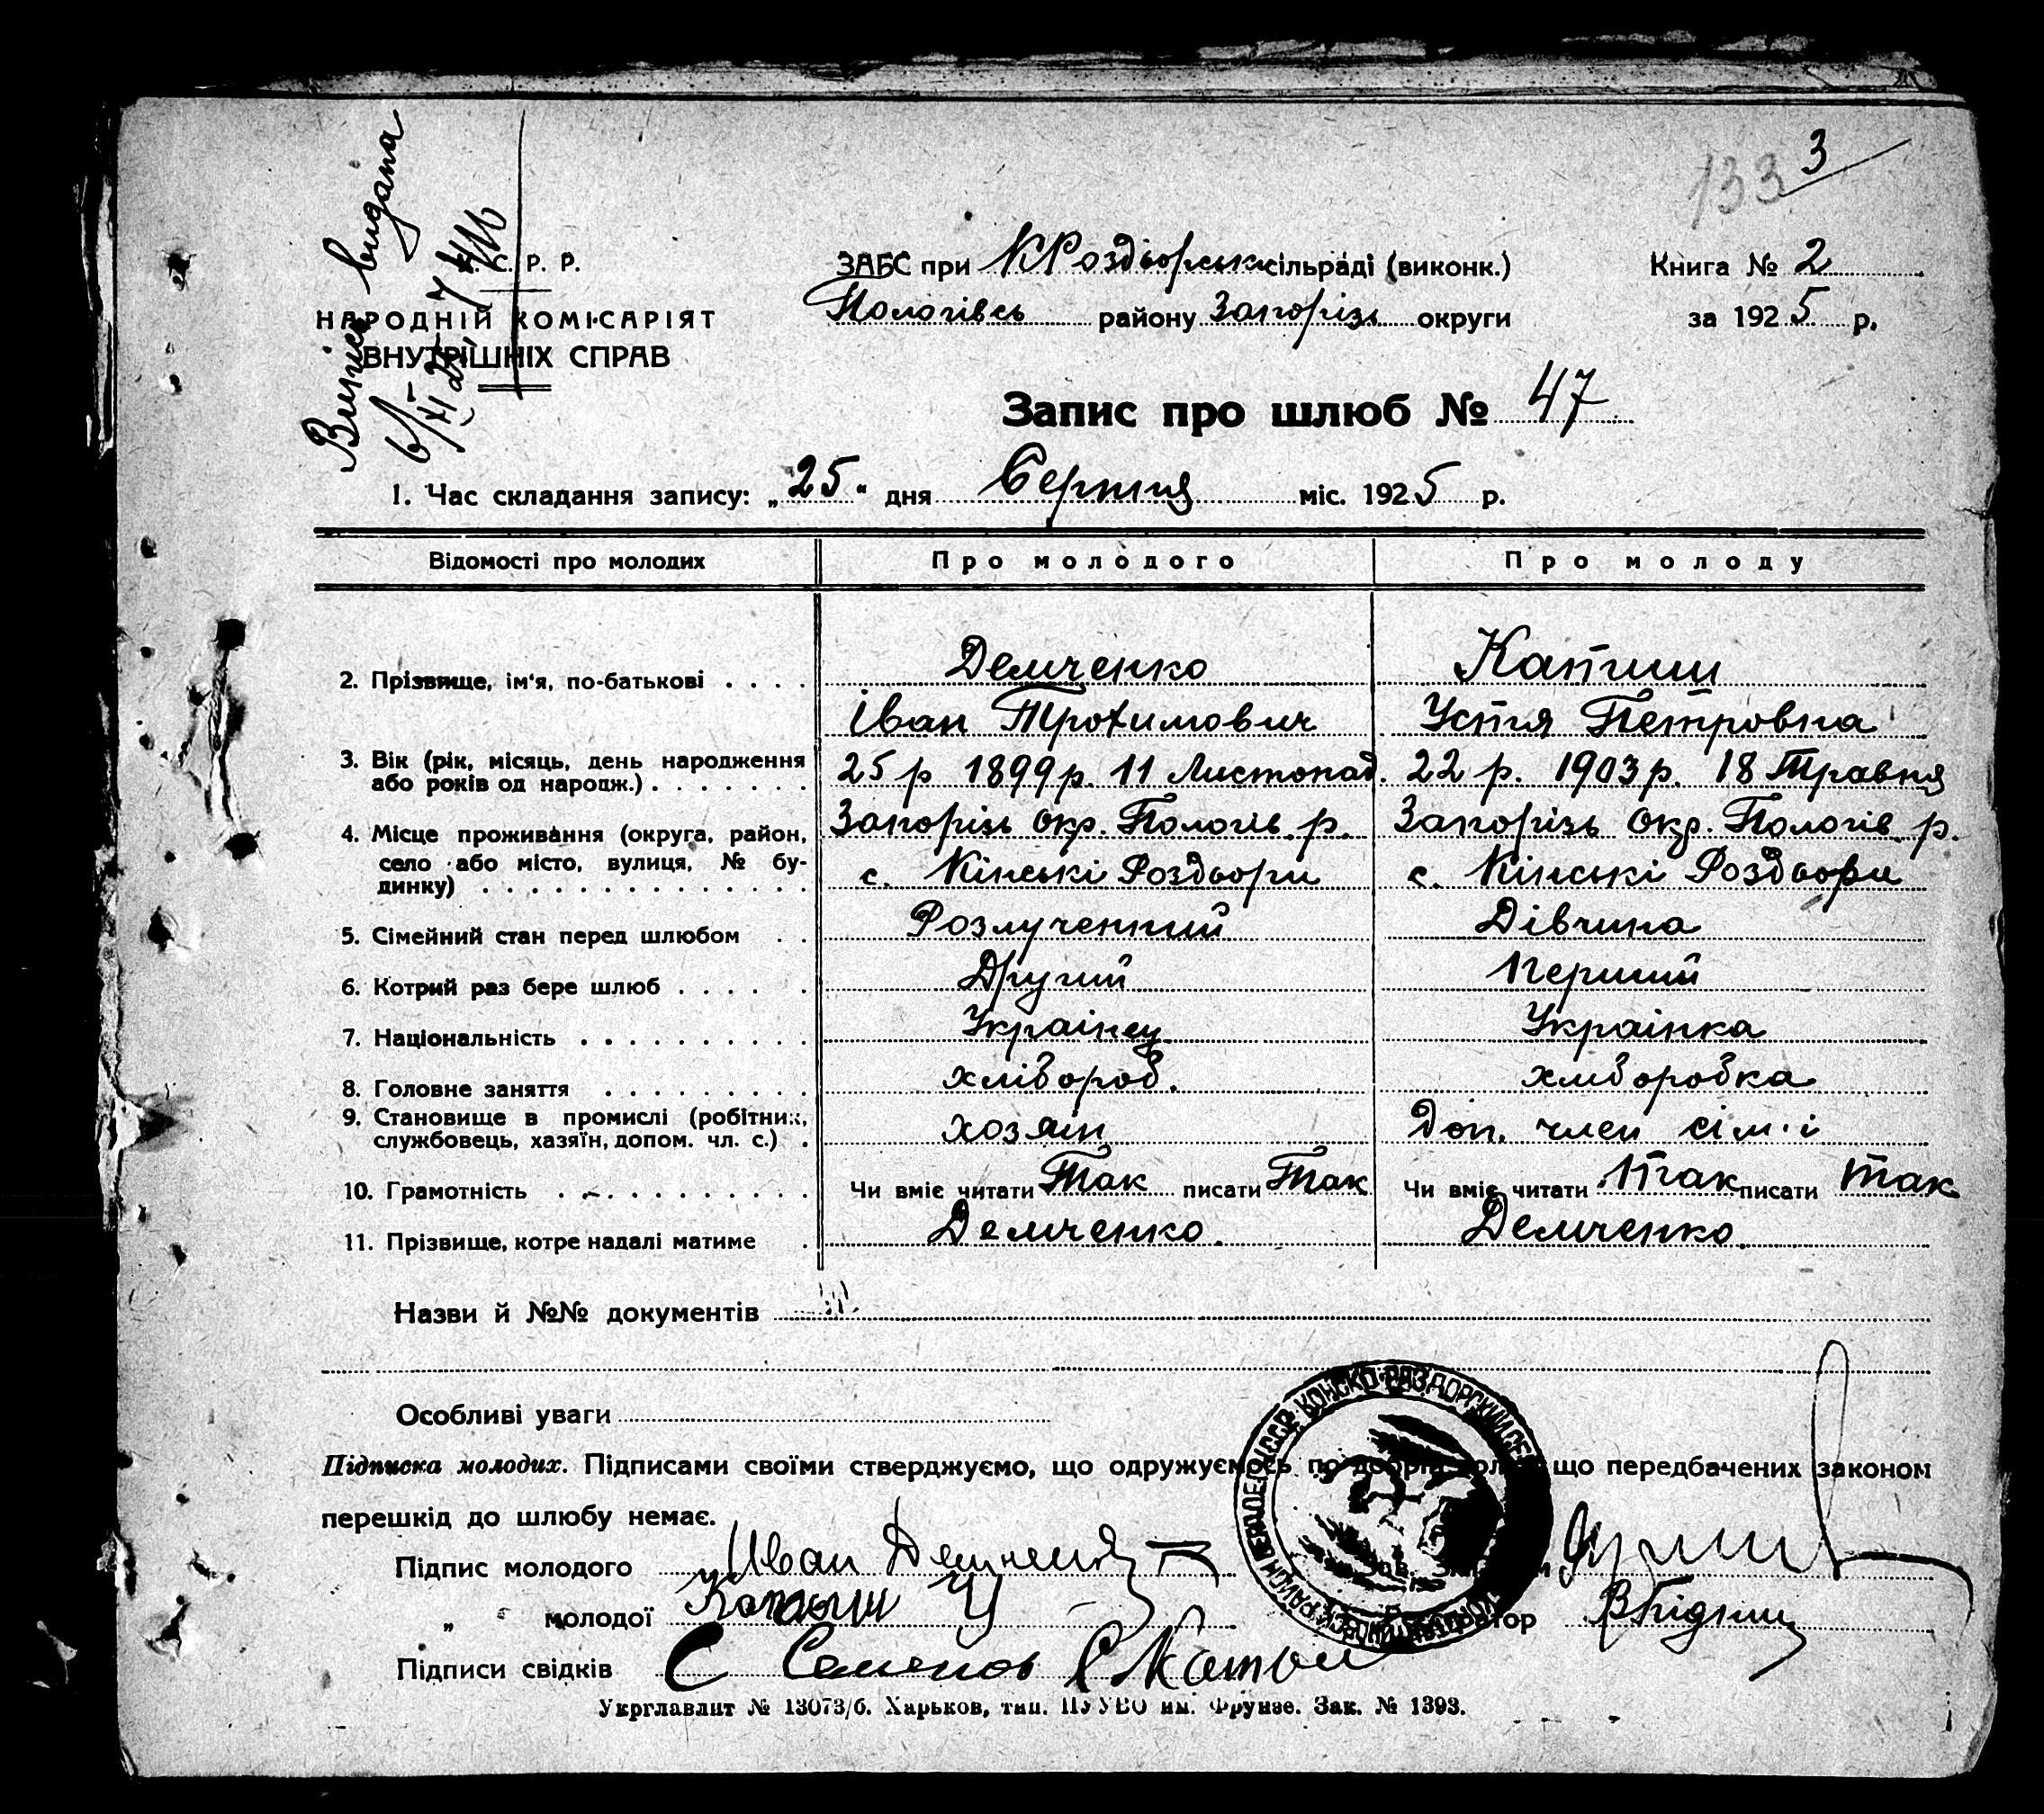 133 3
Випись видана
У. С. Р. Р.
НАРОДНІЙ КОМІСАРІЯТ
ВНУТРІШНІХ СПРАВ
ЗАБС при КРоздорськ сільраді (виконк.)
Пологівсь району Запорізь округи
Книга № 2
за 1925 р.
Запис про шлюб № 47
1. Час складання запису: „25“ дня Серпня міс. 1925 р.
Відомості про молодих Про молодого Про молоду
2. Прізвище, ім'я, по-батькові . . . . Демченко Капиш
Іван Трохимович Устя Петровна
3. Вік (рік, місяць, день народження 25 р 1899 р. 11 Листопад. 22 р. 1903 р. 18 Травня
або років од народж.) . . . . . . .
4. Місце проживання (округа, район, Запорізь окр. Пологів. р. Запорізь окр. Пологів р.
село або місто, вулиця, № бу- с. Кінські Роздори с. Кінські Роздори
динку) . . . . . . . . . . . . . .
5. Сімейний стан перед шлюбом . . Розлученний Дівчина
6. Котрий раз бере шлюб . . . . . Другий Перший
7. Національність . . . . . . . . . . Украінец Украінка
8. Головне заняття . . . . . . . . . хлібороб. хліборобка
9. Становище в промислі (робітник, хозяін Доп. член сім'і
службовець, хазяїн, допом. чл. с.) .
10. Грамотність . . . . . . . . . . . Чи вміє читати Так писати Так Чи вміє читати Так писати Так
11. Прізвище, котре надалі матиме . Демченко. Демченко.
Назви й №№ документів
Особливі уваги
Підписка молодих. Підписами своїми стверджуємо, що одружуємось по добрій волі що передбачених законом
перешкід до шлюбу немає.
Підпис молодого Иван Демченко
„ молодої Капыш У
Підписи свідків С Семенов
Укрглавлит № 13073/б. Харьков, тип. ПУУВО им. Фрунзе. Зак. № 1393.